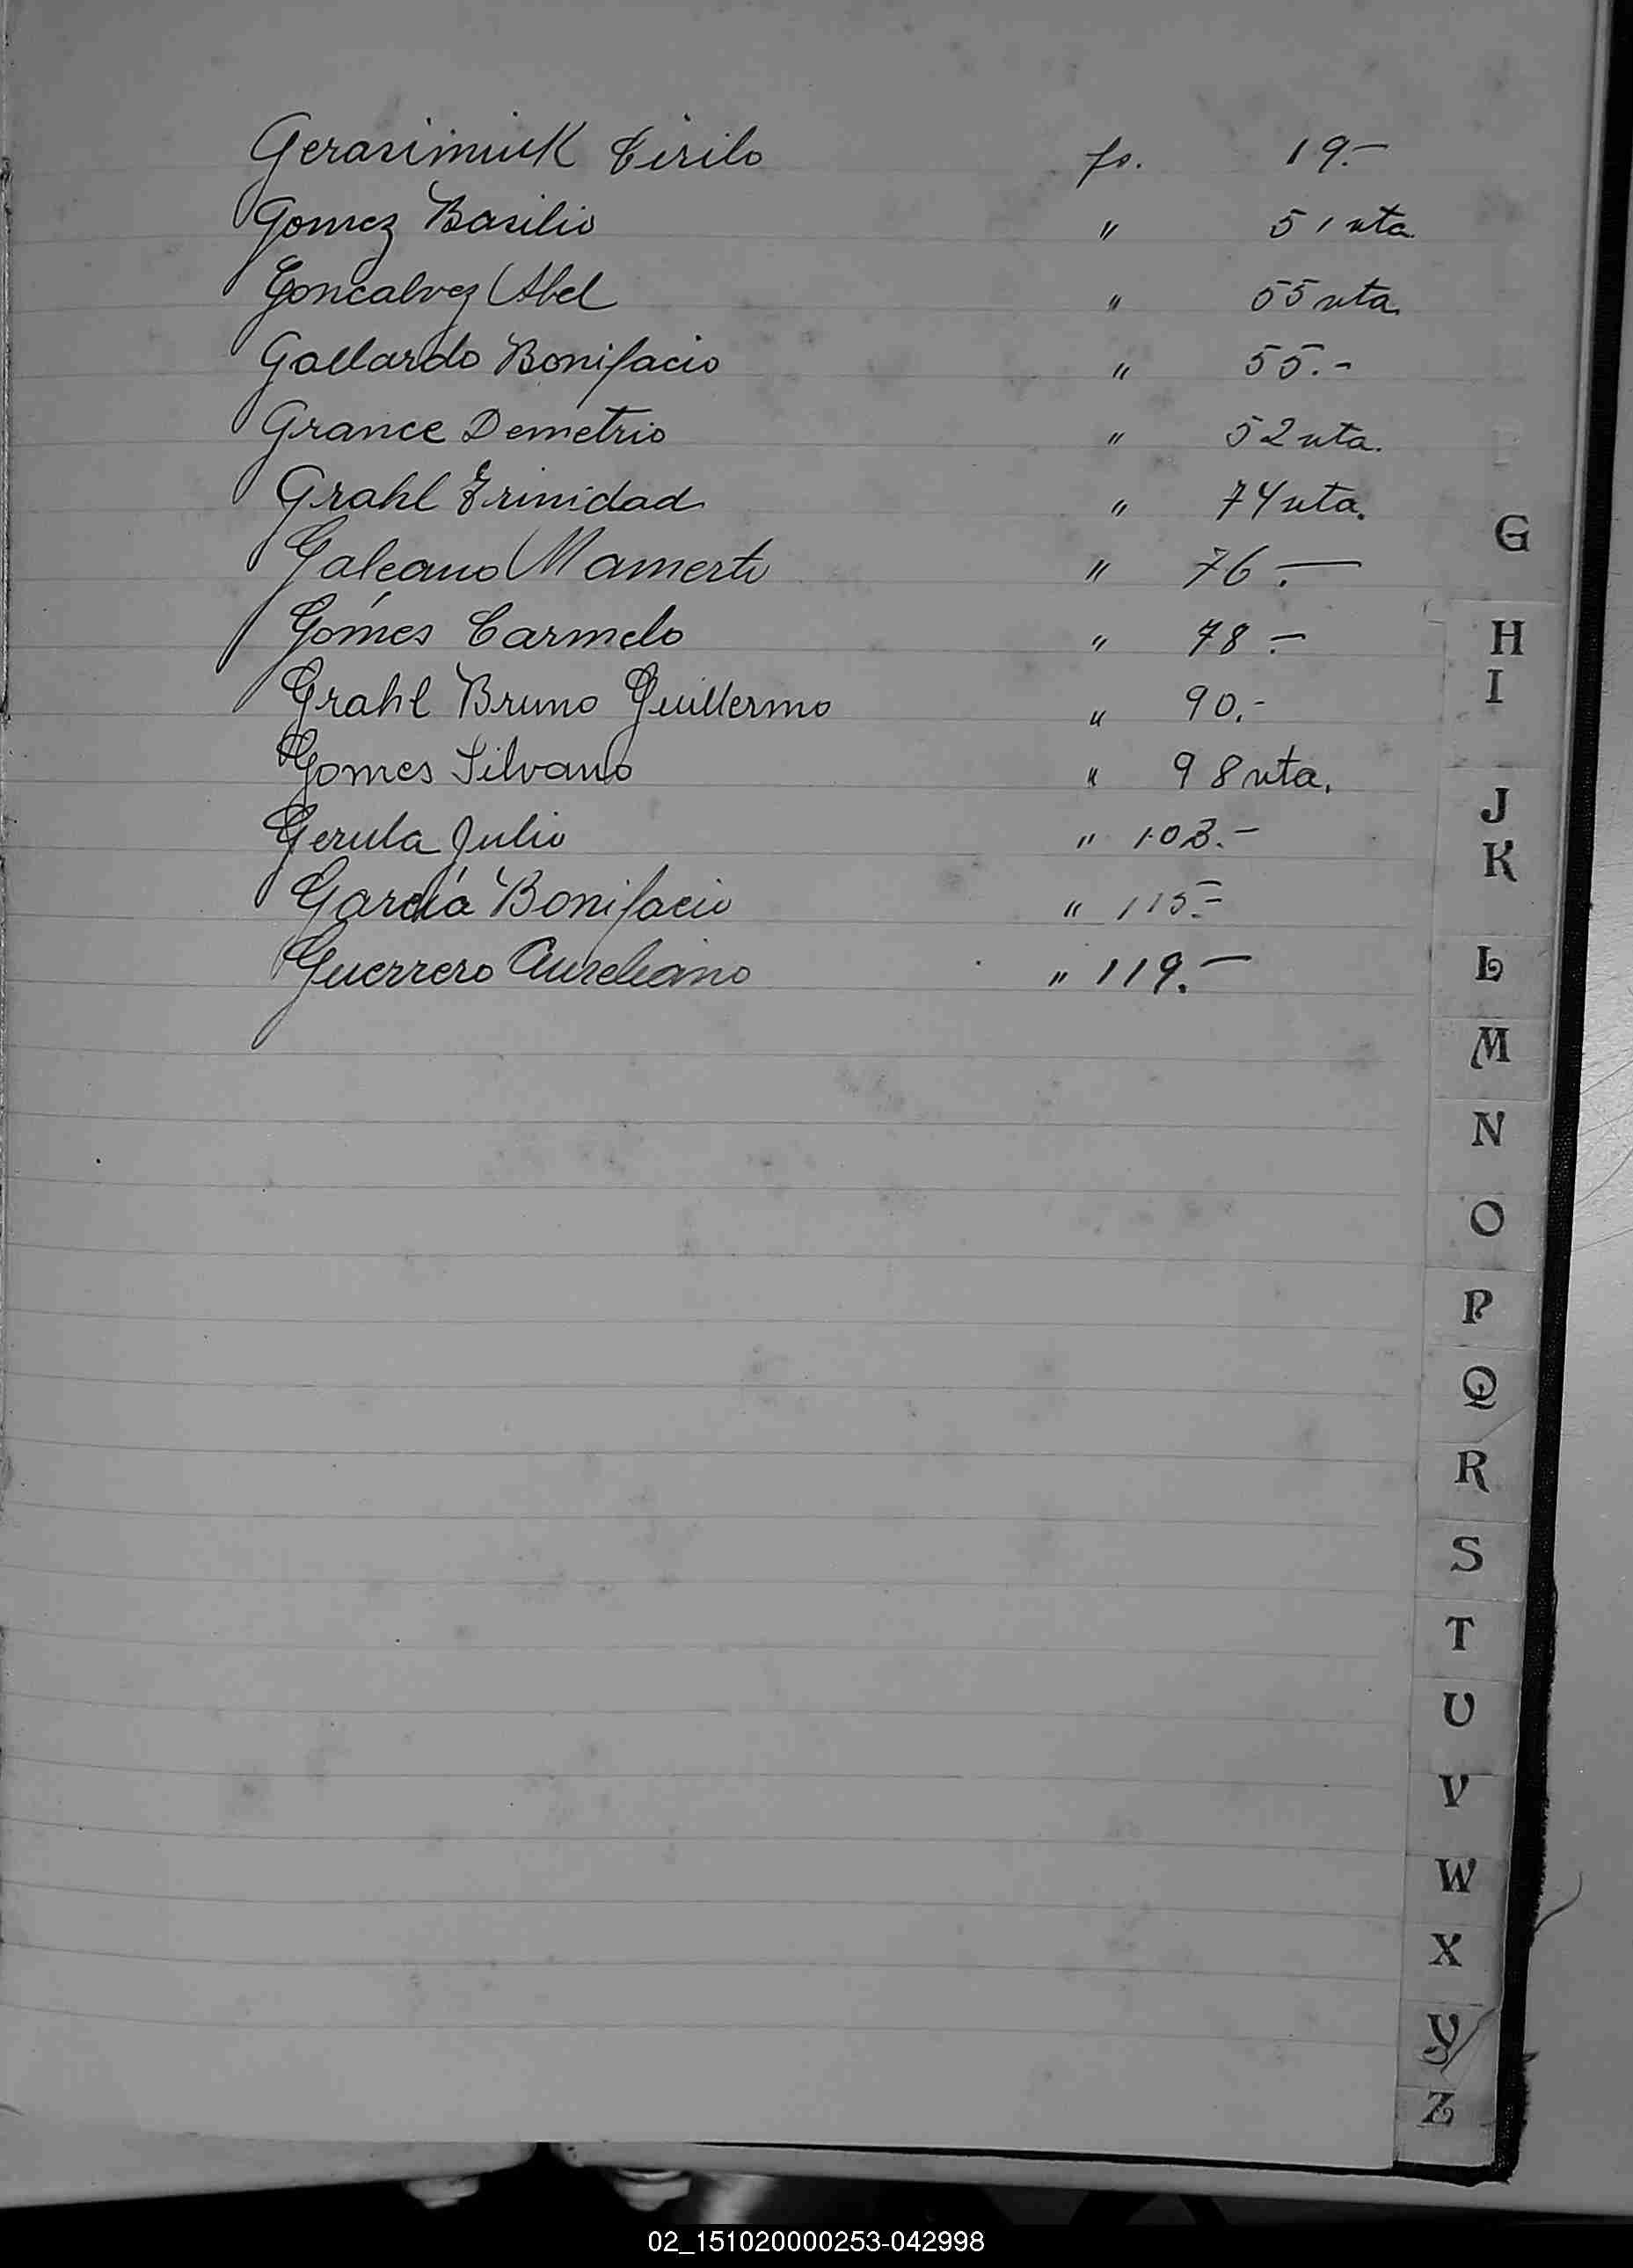 Gerasimiuk Cirilo fs. 19.-
Gomez Basilio " 51 vta
Goncalvez Abel " 55 vta.
Gallardo Bonifacio " 55.-
Grance Demetrio " 52 vta.
Grahl Trinidad " 74 vta.
Galeano Mamerto " 76.-
Gómes Carmelo " 78.-
Grahl Bruno Guillermo " 90.-
Gomes Silvano " 98 vta.
Gerula Julio " 103.-
García Bonifacio " 115.-
Guerrero Aureliano " 119.-
G
H
I
J
K
L
M
N
O
P
Q
R
S
T
U
V
W
X
Y
Z
02_151020000253-042998